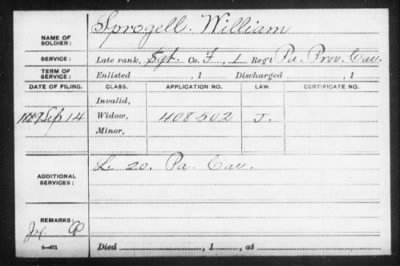 NAME OF SOLDIER: Sprogell. William
SERVICE: Late rank, Sgt. Co. F, 1 Reg't Pa. Prov. Cav.
TERM OF SERVICE: Enlisted , 1 Discharged , 1
DATE OF FILING. CLASS. APPLICATION NO. LAW. CERTIFICATE NO.
Invalid,
1889 Sep 14 Widow, 408502 J.
Minor,
ADDITIONAL SERVICES: L. 20. Pa Cav.
REMARKS:
6—475 Died , 1 , at